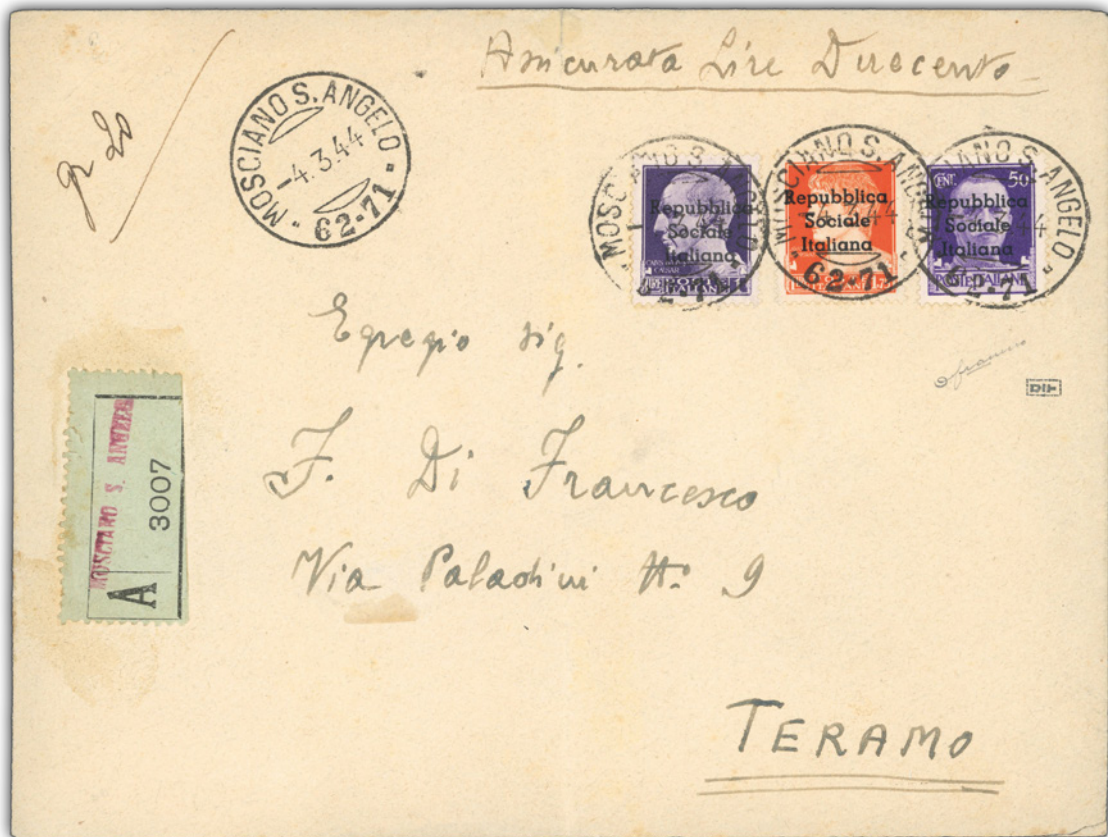 Assicurata Lire Duecento
MOSCIANO S. ANGELO
-4.3.44
62-71
MOSCIANO S. ANGELO
62-71
Repubblica
Sociale
Italiana
MOSCIANO S. ANGELO
4.3.44
62-71
Repubblica
Sociale
Italiana
MOSCIANO S. ANGELO
44
62-71
CENT. 50
Repubblica
Sociale
Italiana
POSTE ITALIANE
Egregio sig.
F. Di Francesco
Via Paladini N. 9
TERAMO
MOSCIANO S. ANGELO
A 3007